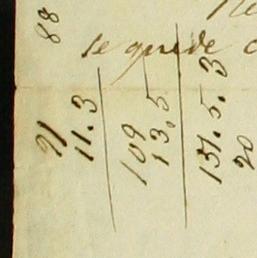 88
se quede
91
11.3
109
13.5
151.5.3
20